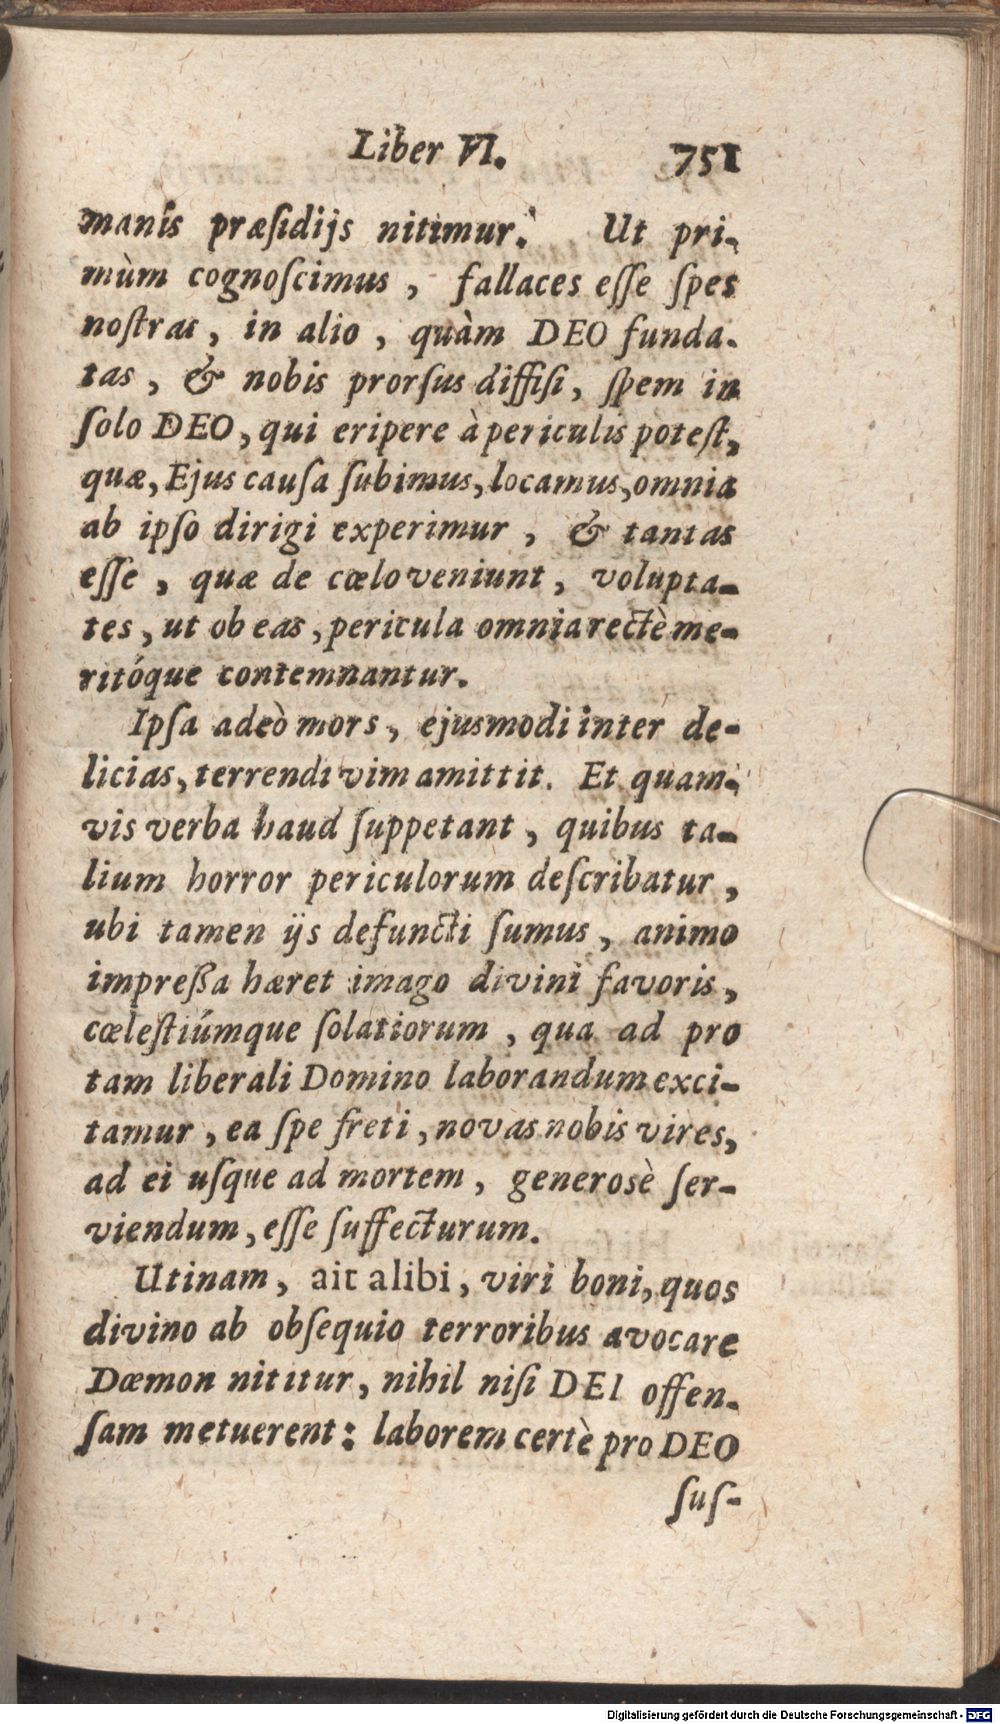 Liber VI. 751
manis præſidijs nitimur. Ut pri-
mùm cognoſcimus, fallaces eſſe ſpes
noſtras, in alio, quàm DEO funda-
tas, & nobis prorſus diffiſi, ſpem in
ſolo DEO, qui eripere à periculis poteſt,
quæ, Ejus cauſa ſubimus, locamus, omnia
ab ipſo dirigi experimur, & tantas
eſſe, quæ de cœlo veniunt, volupta-
tes, ut ob eas, pericula omnia rectè me-
ritóque contemnantur.
Ipſa adeò mors, ejusmodi inter de-
licias, terrendi vim amittit. Et quam-
vis verba haud ſuppetant, quibus ta-
lium horror periculorum deſcribatur,
ubi tamen ijs defuncti ſumus, animo
impreßa hæret imago divini favoris,
cœleſtiúmque ſolatiorum, qua ad pro
tam liberali Domino laborandum exci-
tamur, ea ſpe freti, novas nobis vires,
ad ei uſque ad mortem, generosè ſer-
viendum, eſſe ſuffecturum.
Utinam, ait alibi, viri boni, quos
divino ab obſequio terroribus avocare
Dæmon nititur, nihil niſi DEI offen-
ſam metuerent: laborem certè pro DEO
ſuſ-
Digitalisierung gefördert durch die Deutsche Forschungsgemeinschaft - DFG